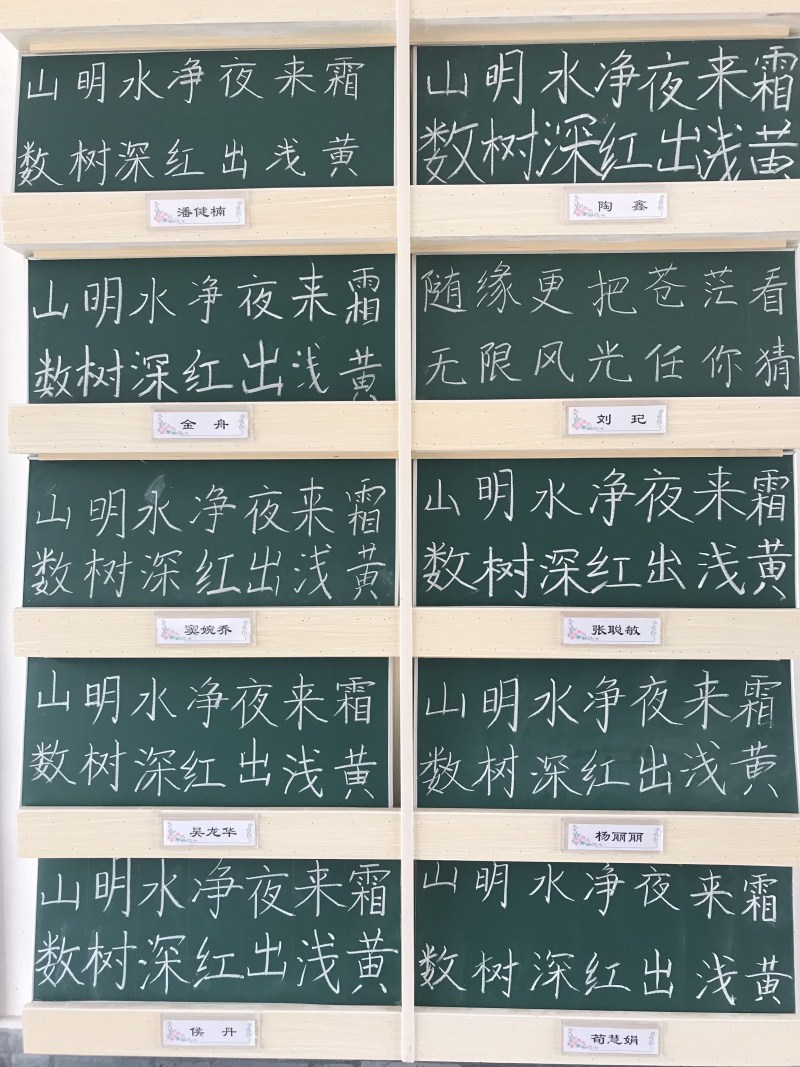 山明水净夜来霜
数树深红出浅黄
潘健楠
山明水净夜来霜
数树深红出浅黄
陶鑫
山明水净夜来霜
数树深红出浅黄
金舟
随缘更把苍茫看
无限风光任你猜
刘玘
山明水净夜来霜
数树深红出浅黄
窦婉乔
山明水净夜来霜
数树深红出浅黄
张聪敏
山明水净夜来霜
数树深红出浅黄
吴龙华
山明水净夜来霜
数树深红出浅黄
杨丽丽
山明水净夜来霜
数树深红出浅黄
侯丹
山明水净夜来霜
数树深红出浅黄
荀慧娟